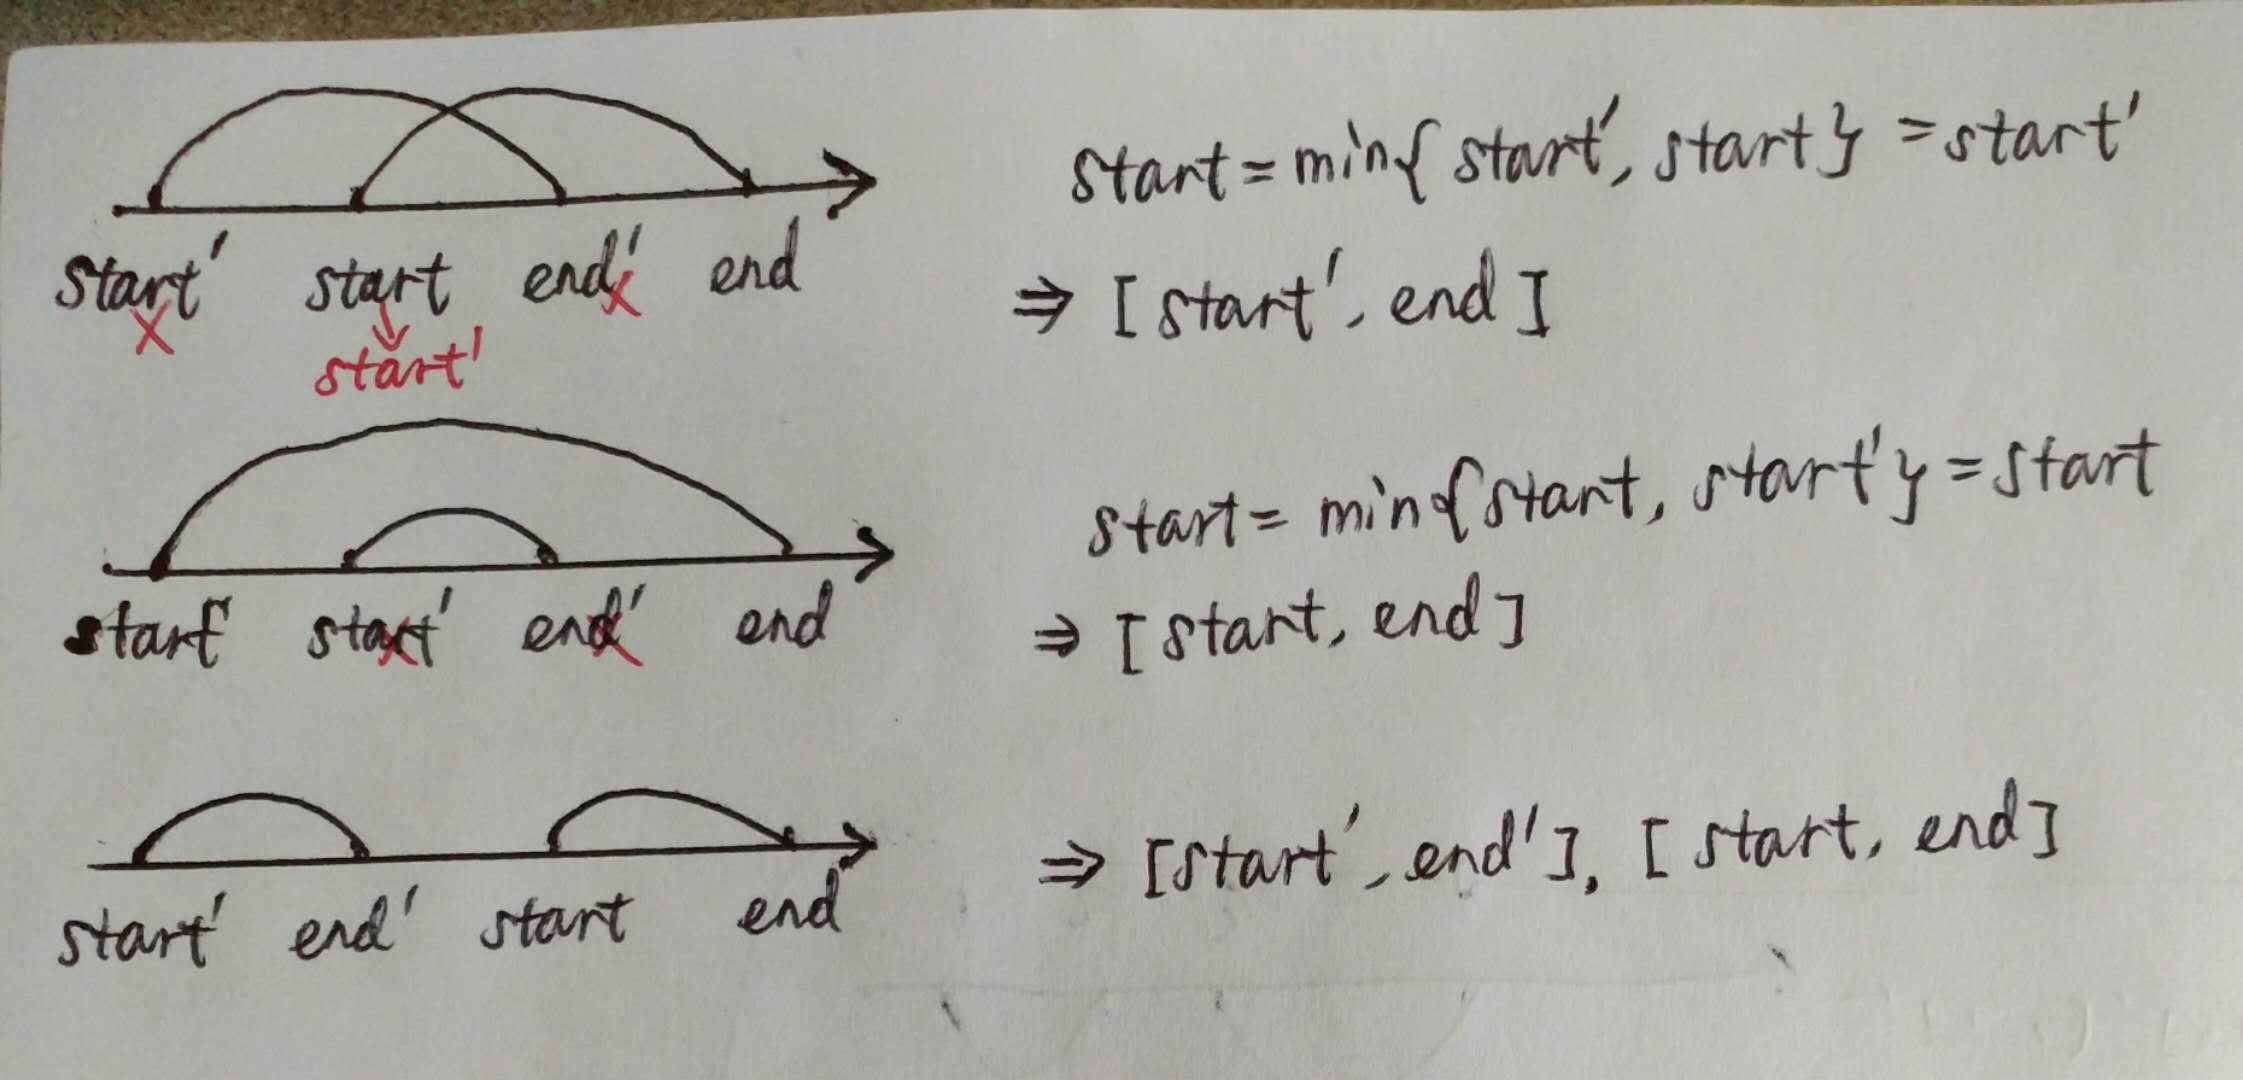 start = min{ start', start } = start'
start' start end' end
⇒ [ start', end ]
start'
start = min{ start, start' } = start
start start' end' end
⇒ [ start, end ]
⇒ [start', end'], [ start, end ]
start' end' start end